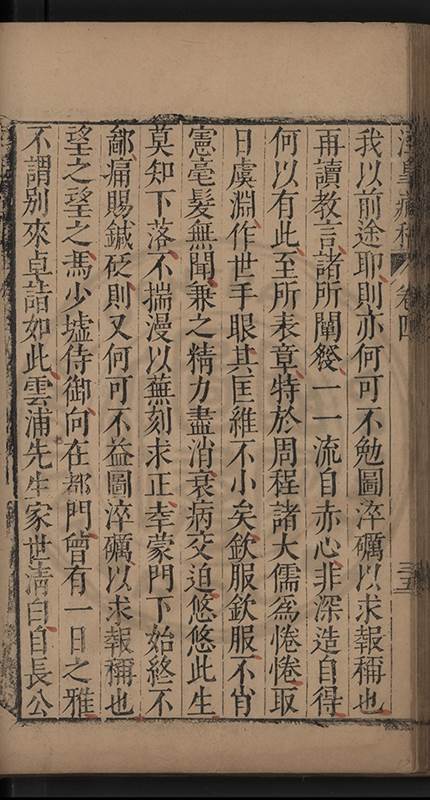 涇臯藏稿 卷四 三五
我以前途耶則亦何可不勉圖淬礪以求報稱也
再讀教言諸所闡發一一流自赤心非深造自得
何以有此至所表章特於周程諸大儒為惓惓取
日虞淵作世手眼其匡維不小矣欽服欽服不肖
憲毫髮無聞兼之精力盡消衰病交迫悠悠此生
莫知下落不揣漫以蕪刻求正幸蒙門下始終不
鄙痛賜鍼砭則又何可不益圖淬礪以求報稱也
望之望之馮少墟侍御向在都門曾有一日之雅
不謂別來卓詣如此雲浦先生家世清白自長公